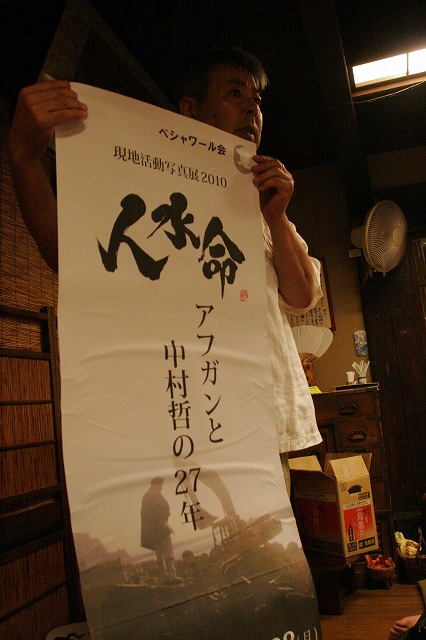 ペシャワール会
現地活動写真展2010
人水命
アフガンと
中村哲の27年